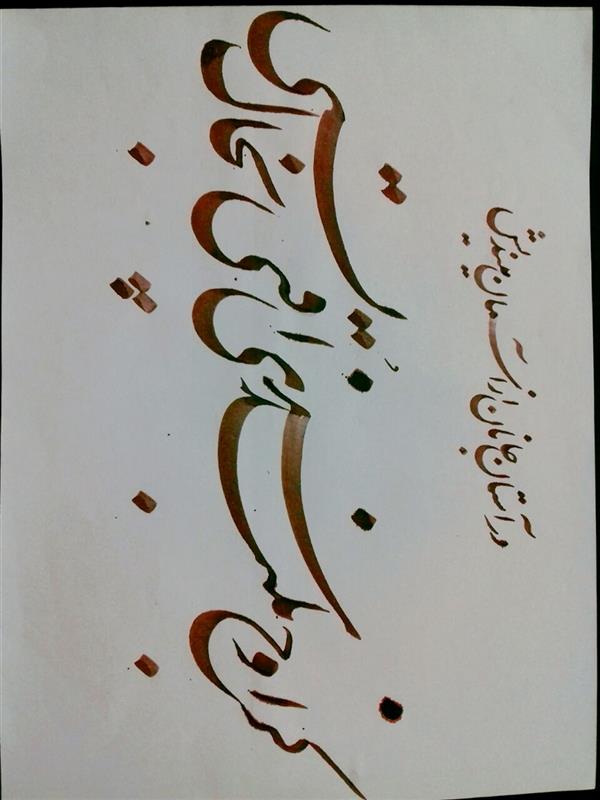 در آستان جانان از آسمان میندیش
کز اوج سربلندی افتی بخاک پستی